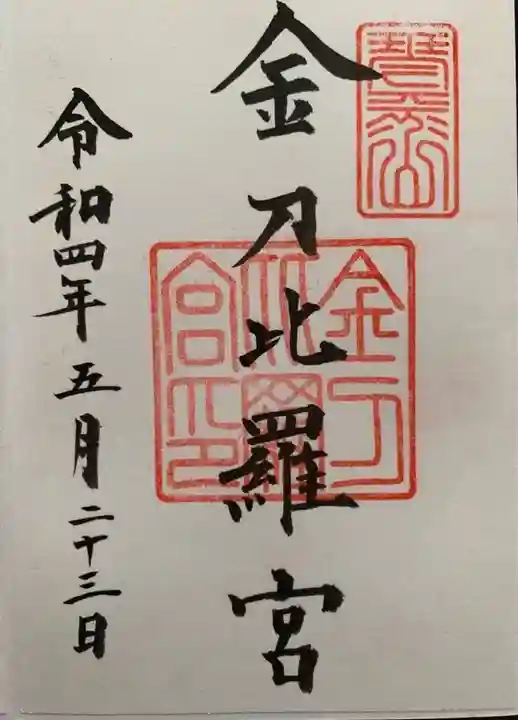 琴平山
金刀比羅宮
金刀比羅宮印
令和四年五月二十三日